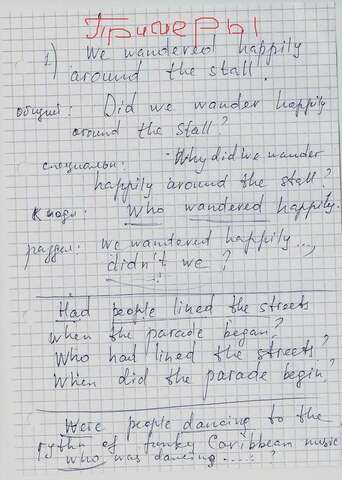 Примеры
1) We wandered happily
around the stall.
общий: Did we wander happily
around the stall?
специальн. Why did we wander
happily around the stall?
К подл: Who wandered happily.
раздел: we wandered happily...,
didn't we?
Had people lined the streets
when the parade began?
Who had lined the streets?
When did the parade begin?
Were people dancing to the
rythm of funky Caribbean music
who was dancing.....?